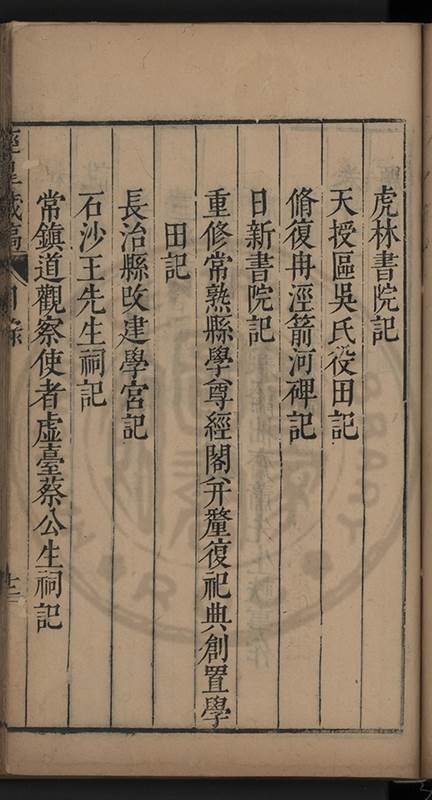 虎林書院記
天授區吳氏役田記
脩復冉涇箭河碑記
日新書院記
重修常熟縣學尊經閣并釐復祀典創置學
田記
長治縣改建學宮記
石沙王先生祠記
常鎮道觀察使者虛臺蔡公生祠記
涇皐藏稿 目錄 十二